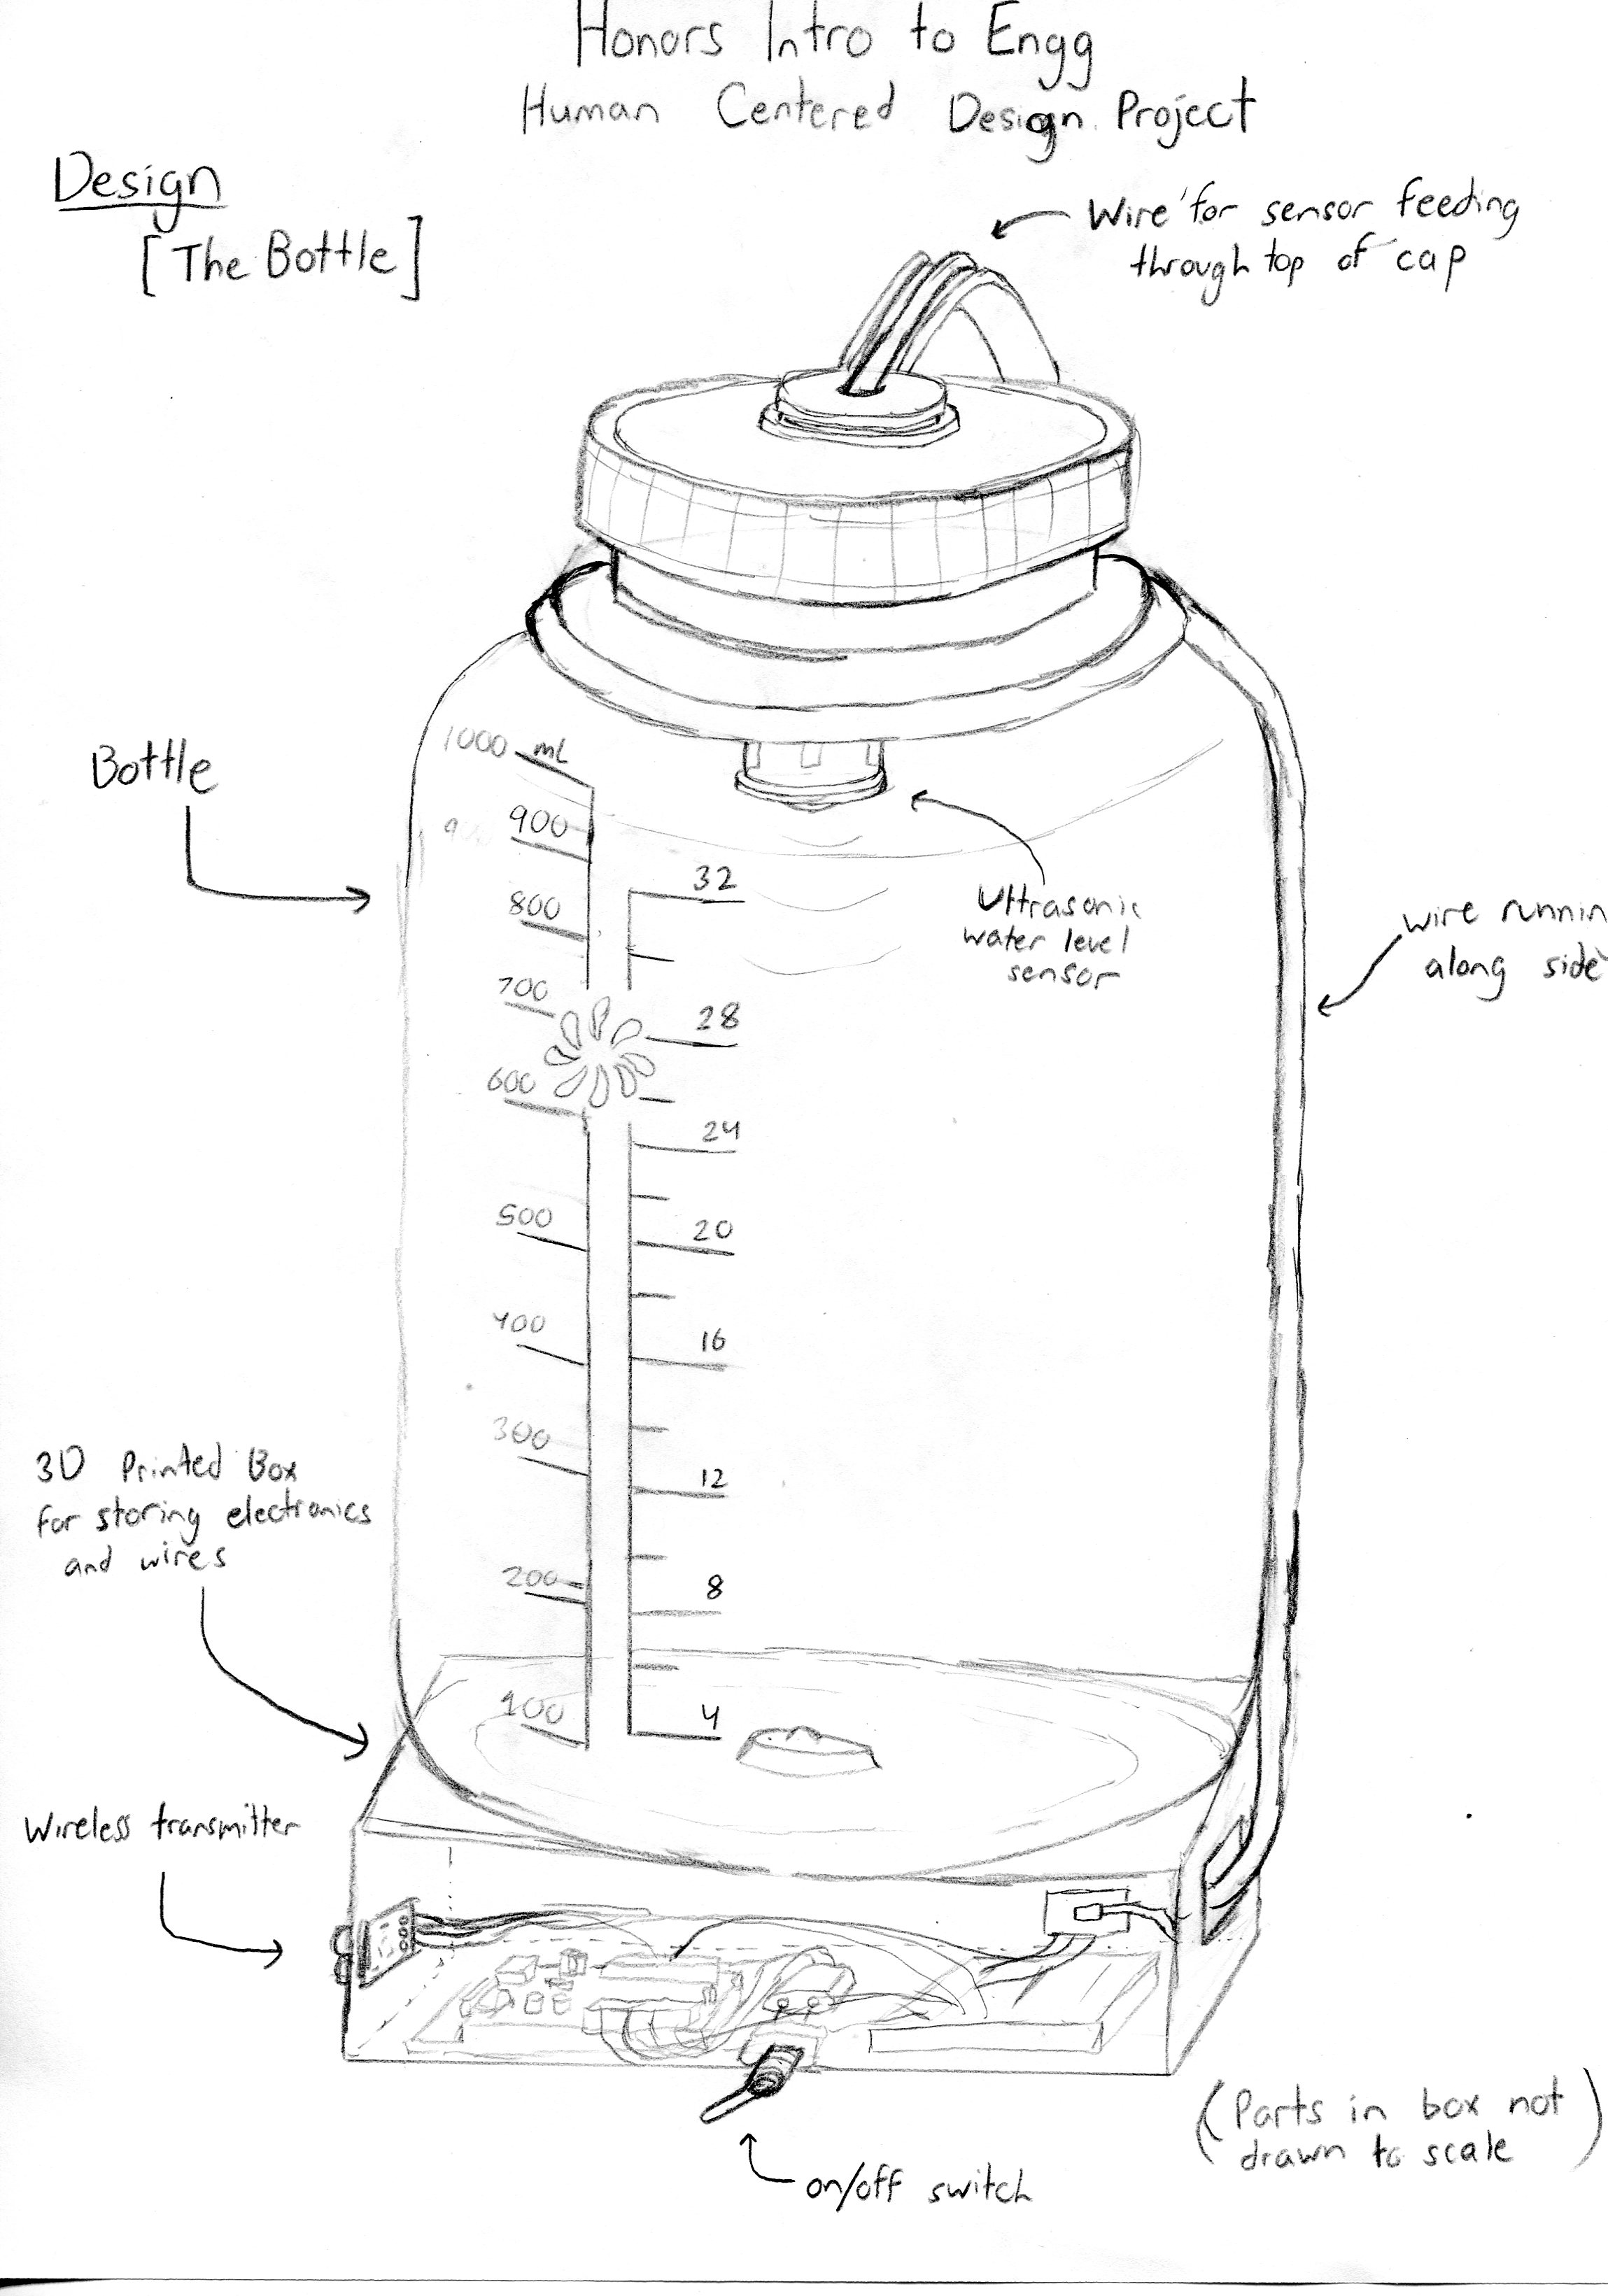 Honors Intro to Engg
Human Centered Design Project
Design
[The Bottle]
Wire for sensor feeding
through top of cap
Bottle
1000 mL
900
900
800
700
600
500
400
300
200
100
32
28
24
20
16
12
8
4
Ultrasonic
water level
sensor
wire runnin
along side
3D Printed Box
for storing electronics
and wires
Wireless transmitter
(Parts in box not
drawn to scale)
on/off switch